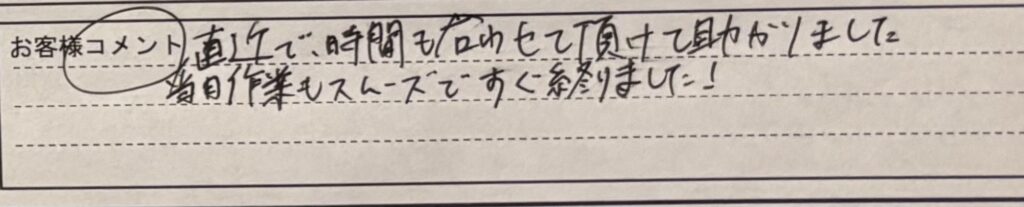 お客様コメント 直近で、時間も合わせて頂けて助かりました
当日作業もスムーズですぐ終りました!